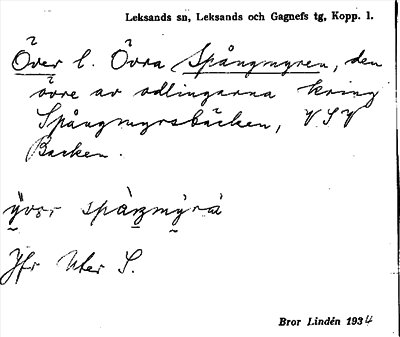 Leksands sn, Leksands och Gagnefs tg, Kopp. l.
Över l. Övra Spångmyren, den
övre av odlingarna kring
Spångmyrsbäcken, VSV
Backen.
Jfr Uter S.
Bror Lindén 1934